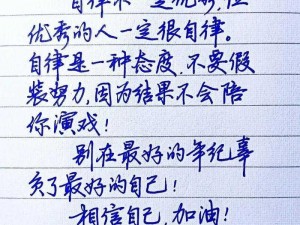 自律不一定优秀，但
优秀的人一定很自律。
自律是一种态度，不要假
装努力，因为结果不会陪
你演戏！
别在最好的年纪辜
负了最好的自己！
相信自己，加油！